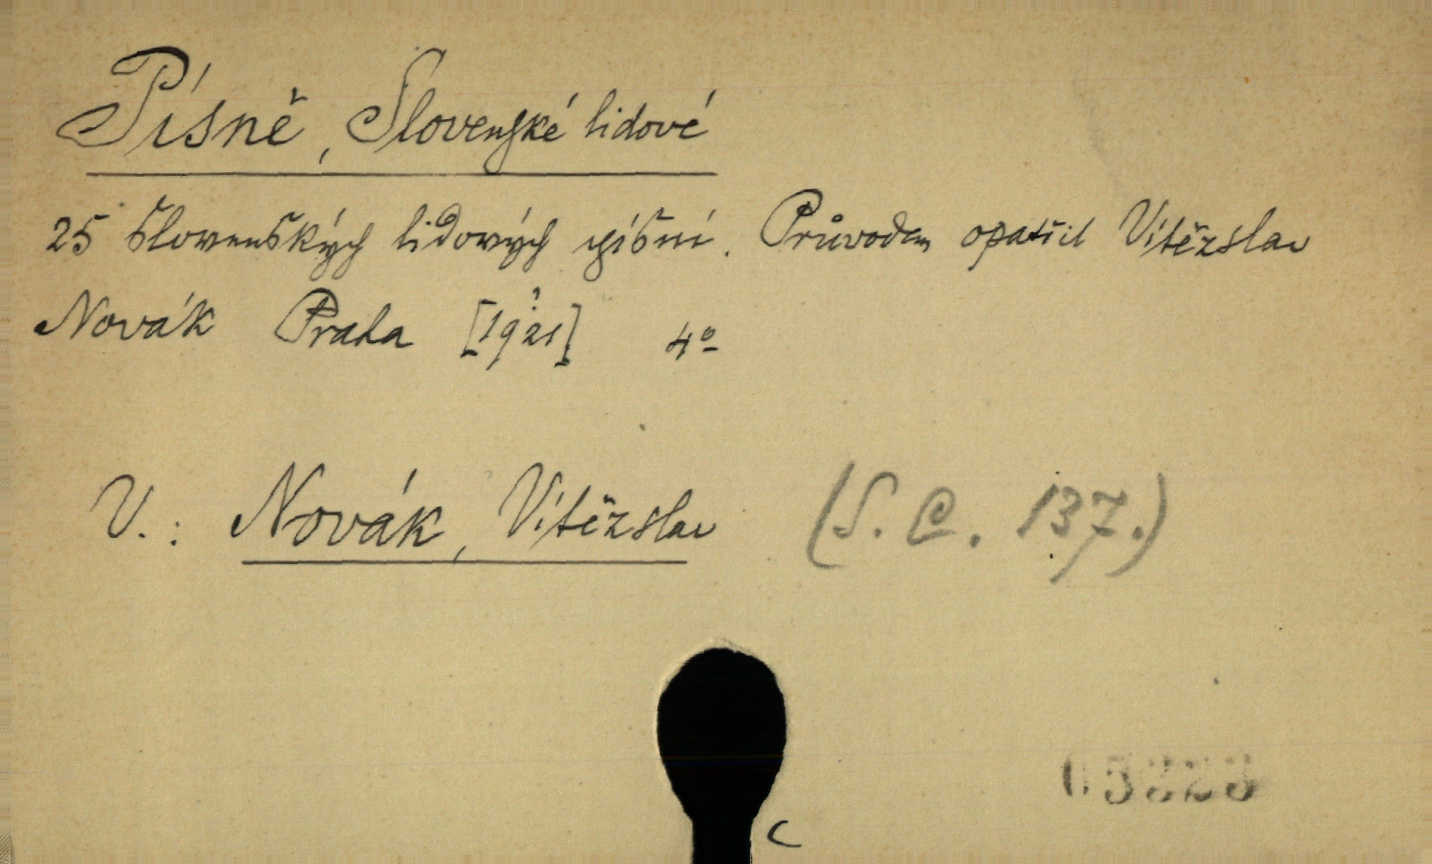 Písně, Slovenské lidové
25 slovenských lidových písní. Průvodem opatřil Vítězslav
Novák Praha [19?21] 4º
V.: Novák, Vítězslav (S. C. 137.)
C